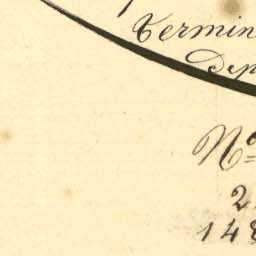 Termin
Dep
Nº
2
148